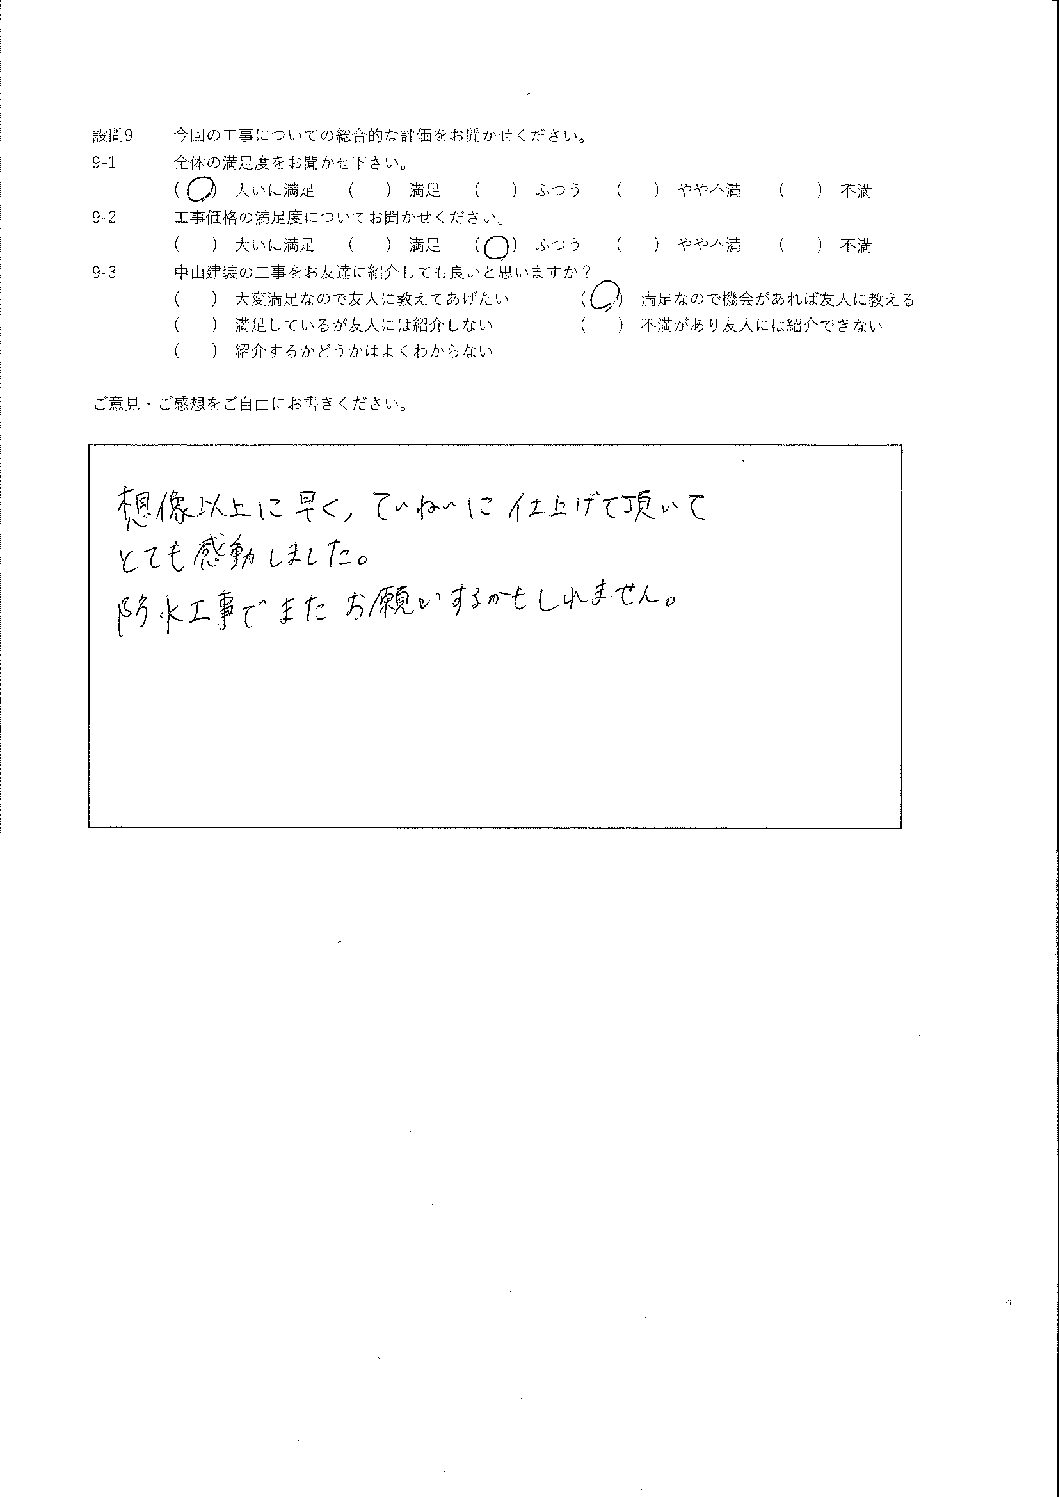 設問9 今回の工事についての総合的な評価をお聞かせください。
9-1 全体の満足度をお聞かせ下さい。
(○) 大いに満足 ( ) 満足 ( ) ふつう ( ) やや不満 ( ) 不満
9-2 工事価格の満足度についてお聞かせください。
( ) 大いに満足 ( ) 満足 (○) ふつう ( ) やや不満 ( ) 不満
9-3 中山建装の工事をお友達に紹介しても良いと思いますか?
( ) 大変満足なので友人に教えてあげたい (○) 満足なので機会があれば友人に教える
( ) 満足しているが友人には紹介しない ( ) 不満があり友人には紹介できない
( ) 紹介するかどうかはよくわからない
ご意見・ご感想をご自由にお書きください。
想像以上に早く、ていねいに仕上げて頂いて
とても感動しました。
防水工事でまたお願いするかもしれません。